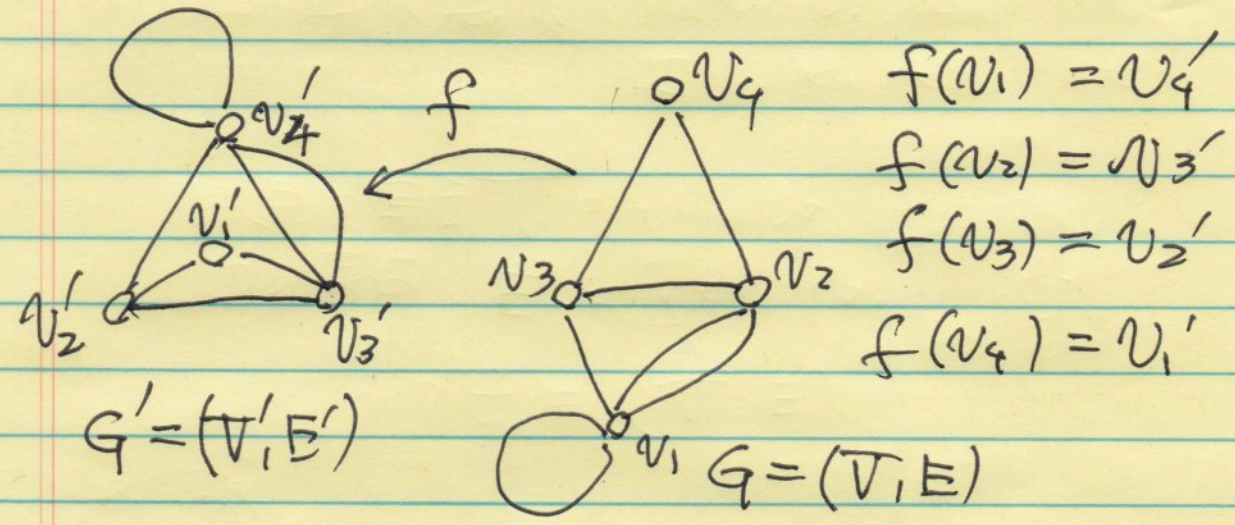 v₄′
v₁′
v₂′
v₃′
G′=(V′,E′)
f
v₄
v₃
v₂
v₁
G=(V,E)
f(v₁) = v₄′
f(v₂) = v₃′
f(v₃) = v₂′
f(v₄) = v₁′